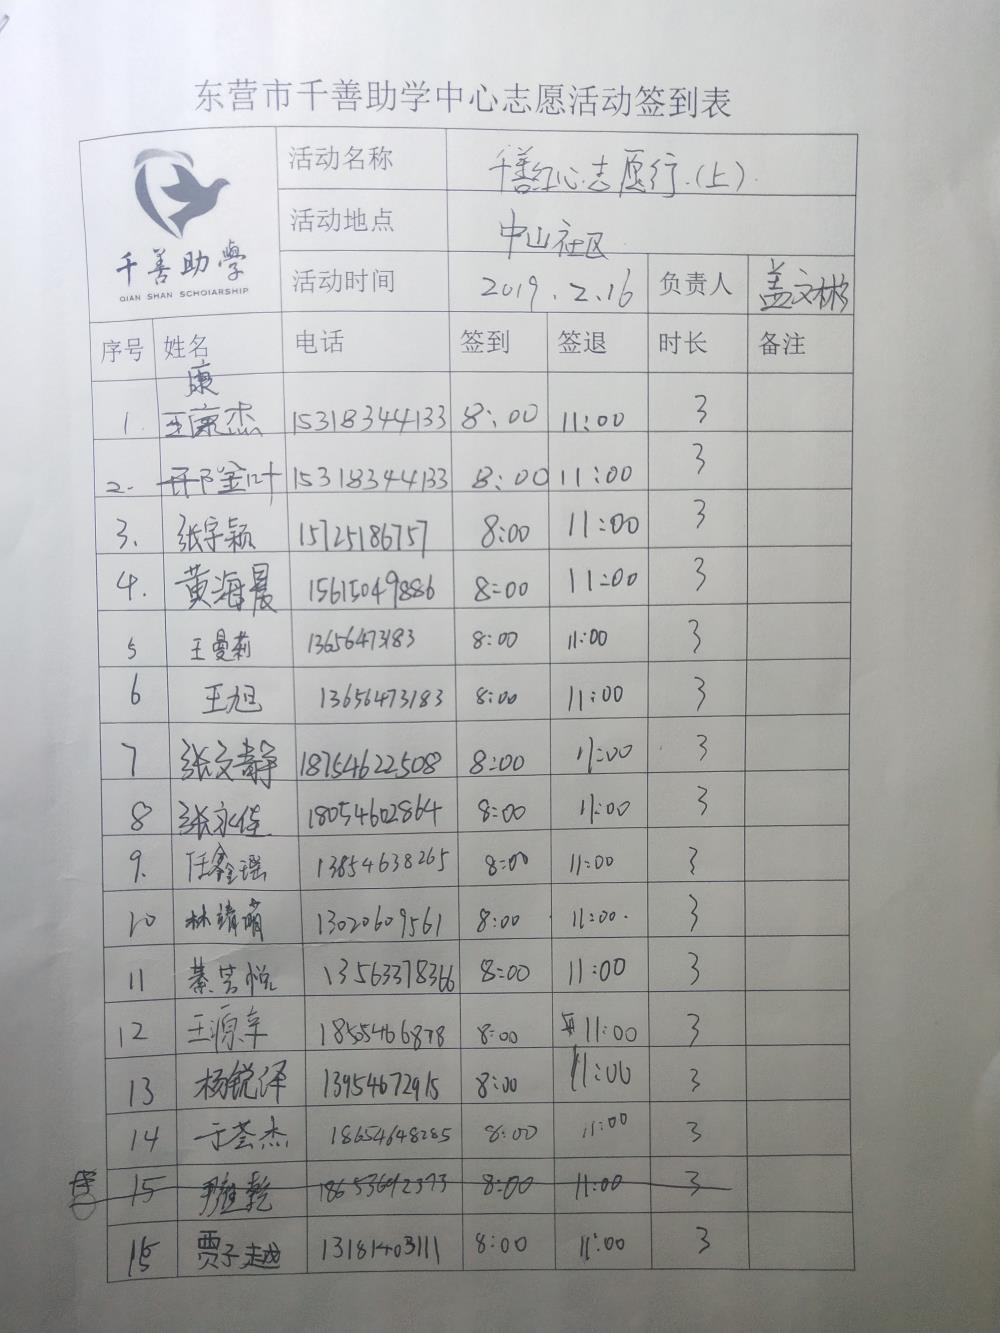 东营市千善助学中心志愿活动签到表
千善助學
QIAN SHAN SCHOlARSHIP
活动名称 千善红心志愿行.(上).
活动地点 中山社区
活动时间 2019.2.16 负责人 盖文彬
序号 姓名 电话 签到 签退 时长 备注
康
1. 王康杰 15318344133 8:00 11:00 3
2. 15318344133 8:00 11:00 3
3. 张宇颖 15725186757 8:00 11:00 3
4. 黄海晨 15615049886 8:00 11:00 3
5 王曼莉 13656473183 8:00 11:00 3
6 王旭 13656473183 8:00 11:00 3
7 张文静 18754622508 8:00 11:00 3
8 张永佳 18054602864 8:00 11:00 3
9. 任鑫瑶 13854638265 8:00 11:00 3
10 林靖萌 13020609561 8:00 11:00. 3
11 綦芳悦 13563378366 8:00 11:00 3
12 王源 18554466878 8:00 11:00 3
13 杨锐泽 13954672915 8:00 11:00 3
14 于荟杰 18654648285 8:00 11:00 3
15 8:00 11:00 3
15 贾子越 13181403111 8:00 11:00 3